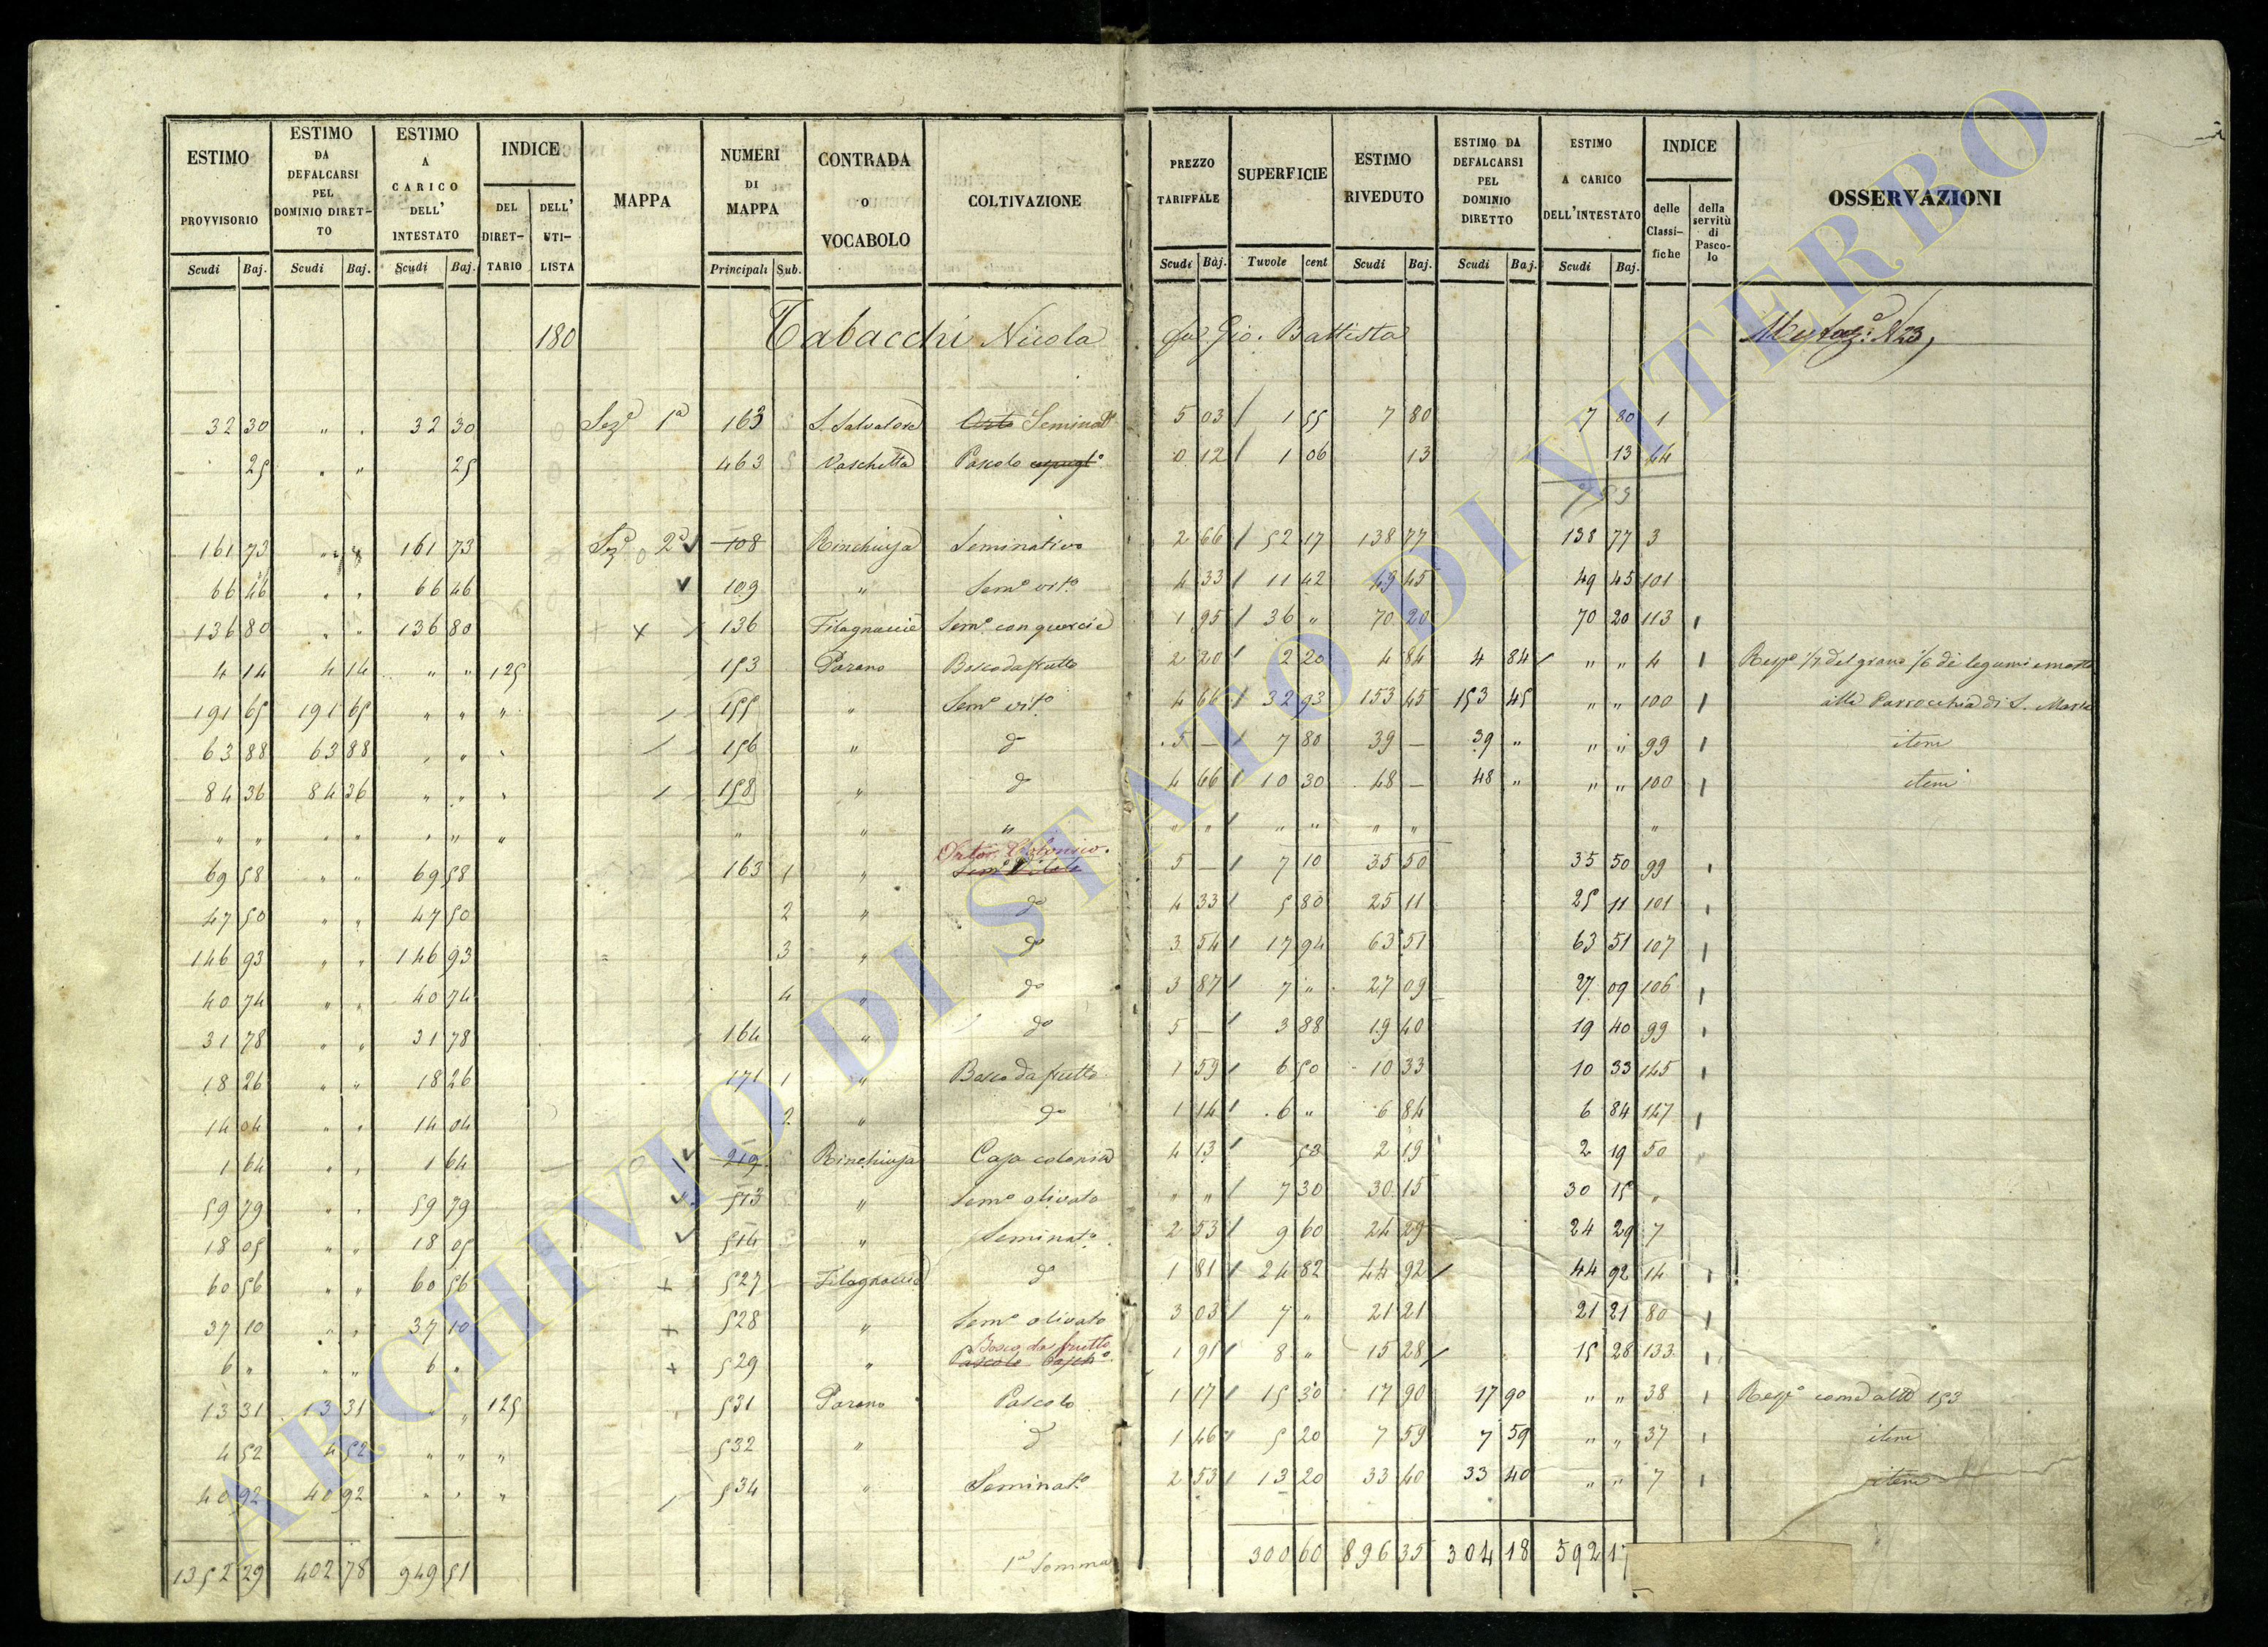 ESTIMO PROVVISORIO Scudi Baj. | ESTIMO DA DEFALCARSI PEL DOMINIO DIRET-TO Scudi Baj. | ESTIMO A CARICO DELL' INTESTATO Scudi Baj. | INDICE DEL DIRET-TARIO DELL' UTI-LISTA | MAPPA | NUMERI DI MAPPA Principali Sub. | CONTRADA O VOCABOLO | COLTIVAZIONE | PREZZO TARIFFALE Scudi Baj. | SUPERFICIE Tavole cent | ESTIMO RIVEDUTO Scudi Baj. | ESTIMO DA DEFALCARSI PEL DOMINIO DIRETTO Scudi Baj. | ESTIMO A CARICO DELL'INTESTATO Scudi Baj. | INDICE delle Classi-fiche della servitù di Pasco-lo | OSSERVAZIONI
180 Tabacchi Nicola fu Gio. Battista N 23
32 30 " " 32 30 Sezᵉ 1ª 163 S. Salvatore Orto Seminatᵒ 5 03 / 1 55 7 80 7 80 1
25 " " 25 463 Vaschetta Pascolo 0 12 / 1 06 13 13 44
7 93
161 73 " " 161 73 Sezᵉ 2ª 108 Rinchiusa Seminativo 2 66 / 52 17 138 77 138 77 3
66 46 " " 66 46 109 " Semᵒ vitᵒ 4 33 / 11 42 49 45 49 45 101
136 80 " " 136 80 x 136 Filagnaccie Semᵒ con quercie 1 95 / 36 " 70 20 70 20 113 1
4 14 4 14 " " 125 153 Parano Bosco da frutto 2 20 / 2 20 4 84 4 84 " " 4 1 Rispᵉ 1/7 del grano 1/6 di legumi e mosto
191 65 191 65 " " " 155 " Semᵒ vitᵒ 4 66 / 32 93 153 45 153 45 " " 100 1 alla Parrocchia di S. Maria
63 88 63 88 " " " 156 " dᵒ 5 — / 7 80 39 — 39 " " " 99 1 item
84 36 84 36 " " " 158 " dᵒ 4 66 / 10 30 48 — 48 " " " 100 1 item
" " " " " " " " " " " " / " " " " "
69 58 " " 69 58 163 1 " Semᵒ Vitato 5 — / 7 10 35 50 35 50 99 1
47 50 " " 47 50 2 " dᵒ 4 33 / 5 80 25 11 25 11 101 1
146 93 " " 146 93 3 " dᵒ 3 54 / 17 94 63 51 63 51 107 1
40 74 " " 40 74 4 " dᵒ 3 87 / 7 " 27 09 27 09 106 1
31 78 " " 31 78 164 " dᵒ 5 — / 3 88 19 40 19 40 99 1
18 26 " " 18 26 171 1 " Bosco da frutto 1 59 / 6 50 10 33 10 33 145 1
14 04 " " 14 04 2 " dᵒ 1 14 / 6 " 6 84 6 84 147 1
1 64 " " 1 64 219 Rinchiusa Casa colonica 4 13 / 53 2 19 2 19 50
59 79 " " 59 79 513 " Semᵒ olivato " " / 7 30 30 15 30 15 "
18 05 " " 18 05 514 " Seminatᵒ 2 53 / 9 60 24 29 24 29 7
60 56 " " 60 56 + 527 Filagnaccie dᵒ 1 81 / 24 82 44 92 44 92 14 1
37 10 " " 37 10 + 528 " Semᵒ olivato 3 03 / 7 " 21 21 21 21 80 1
6 " " " 6 " + 529 " Bosco da frutto Pascolo 1 91 / 8 " 15 28 15 28 133 1
13 31 13 31 " " 125 531 Parano Pascolo 1 17 / 15 30 17 90 17 90 " " 38 1 Rispᵉ come al Nᵒ 153
4 52 4 52 " " " 532 " dᵒ 1 46 5 20 7 59 7 59 " " 37 1 item
40 92 40 92 " " " 534 " Seminatᵒ 2 53 / 13 20 33 40 33 40 " " 7 1 item
1352 29 402 78 949 51 1ª Somma 300 60 896 35 304 18 592 17
ARCHIVIO DI STATO DI VITERBO